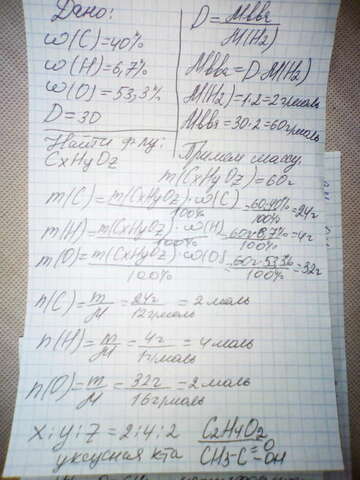 Дано:
w(C)=40%
w(H)=6,7%
w(O)=53,3%
D=30
Найти ф-лу:
CxHyOz
D=Mвва/M(H2)
Mвва=D·M(H2)
M(H2)=1·2=2г/моль
Mвва=30·2=60г/моль
Примем массу
m(CxHyOz)=60г
m(C)=m(CxHyOz)·w(C)/100%=60·40%/100%=24г
m(H)=m(CxHyOz)·w(H)/100%=60г·6,7%/100%=4г
m(O)=m(CxHyOz)·w(O)/100%=60г·53,3%/100%=32г
n(C)=m/M=24г/12г/моль=2моль
n(H)=m/M=4г/1г/моль=4моль
n(O)=m/M=32г/16г/моль=2моль
x:y:z=2:4:2 C2H4O2
уксусная к-та CH3-C=O
OH